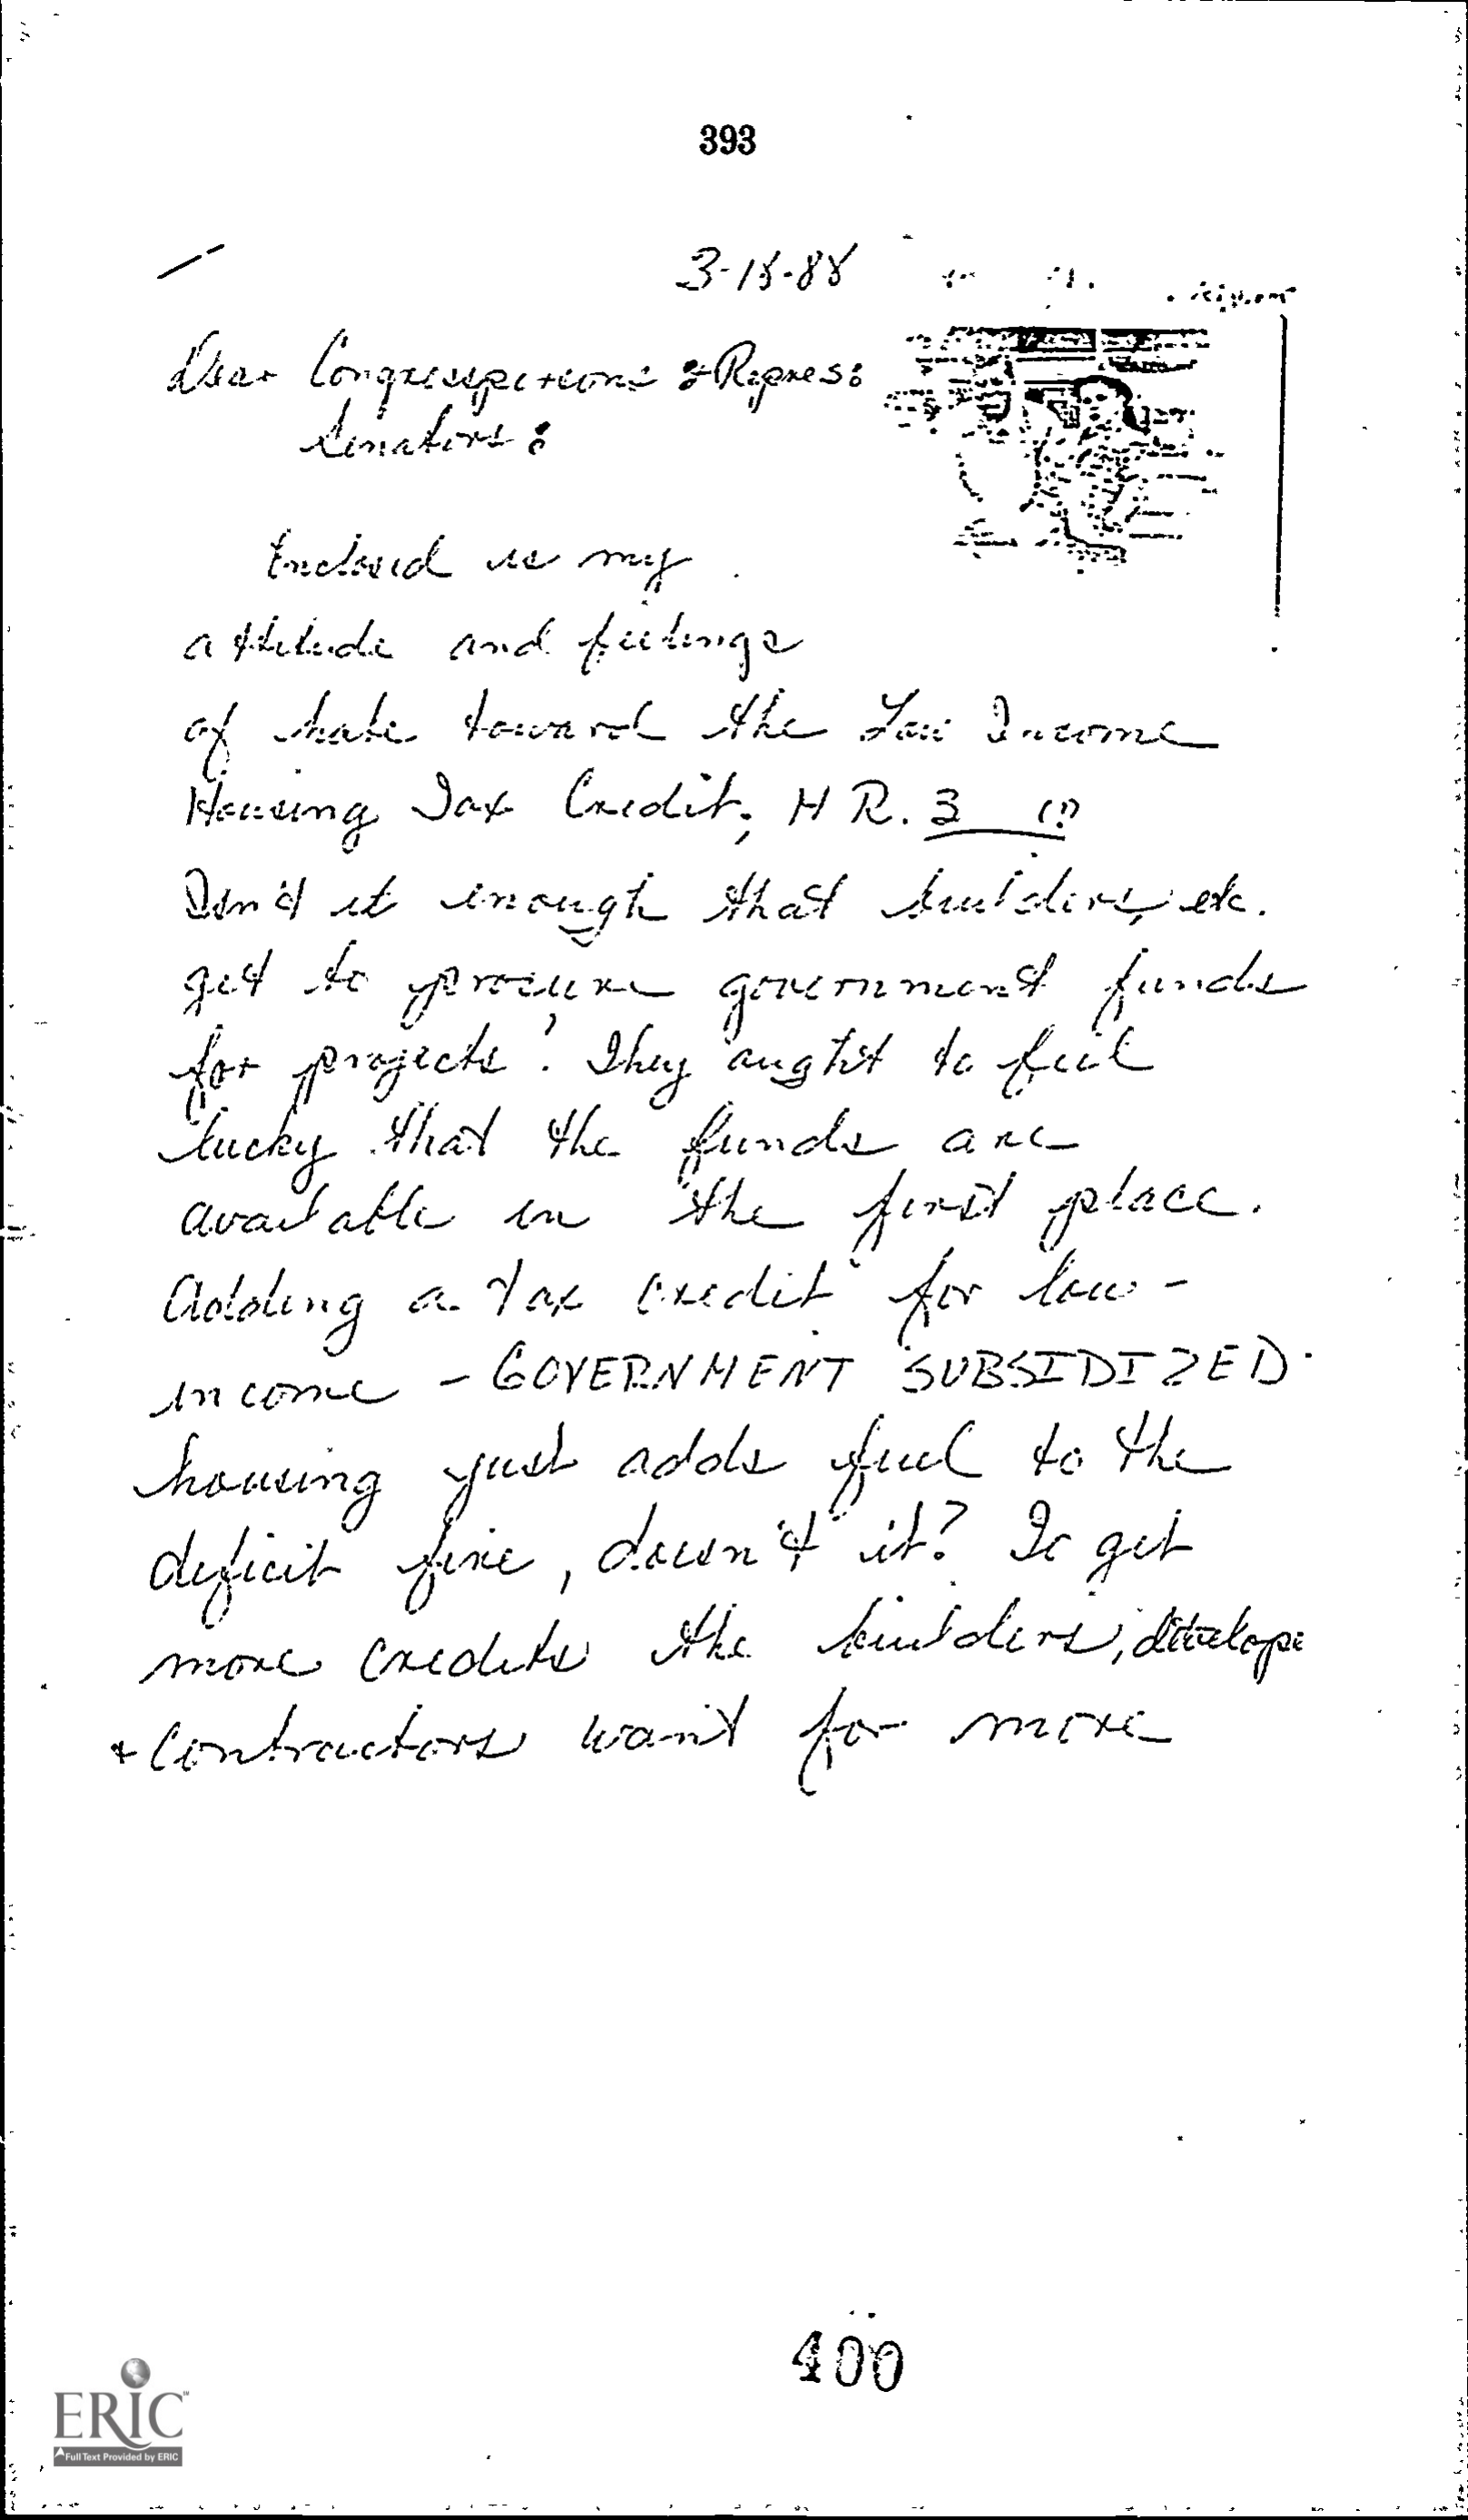 393
3-18-88
Dear Congresspersons & Repres:
Senators:
Enclosed is my
attitude and feelings
of hate toward the Low Income
Housing Tax Credit, HR. 3
Isn't it enough that builders, etc.
get to procure government funds
for projects! They aught to feel
lucky that the funds are
available in the first place.
Adding a tax credit for low-
income - GOVERNMENT SUBSIDIZED
housing just adds fuel to the
deficit fire, doesn't it? To get
more credits the builders, develope
+ contractors want for more
400
ERIC
Full Text Provided by ERIC